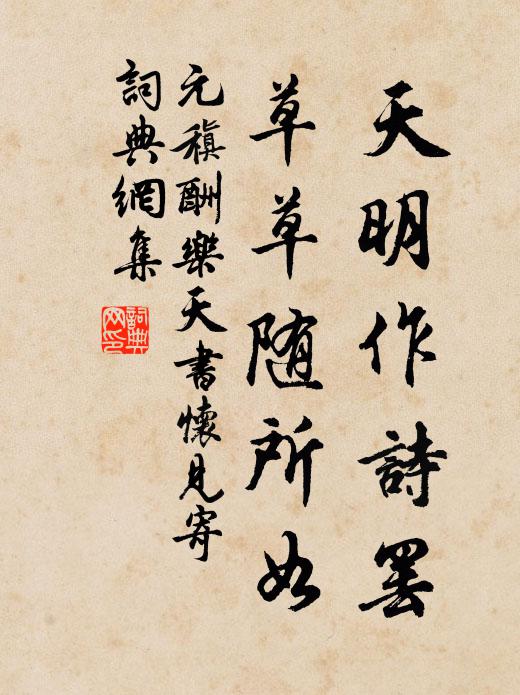 天明作詩罢
草草随所如
元稹酬樂天書懷見寄
詞典網集
詞典网印